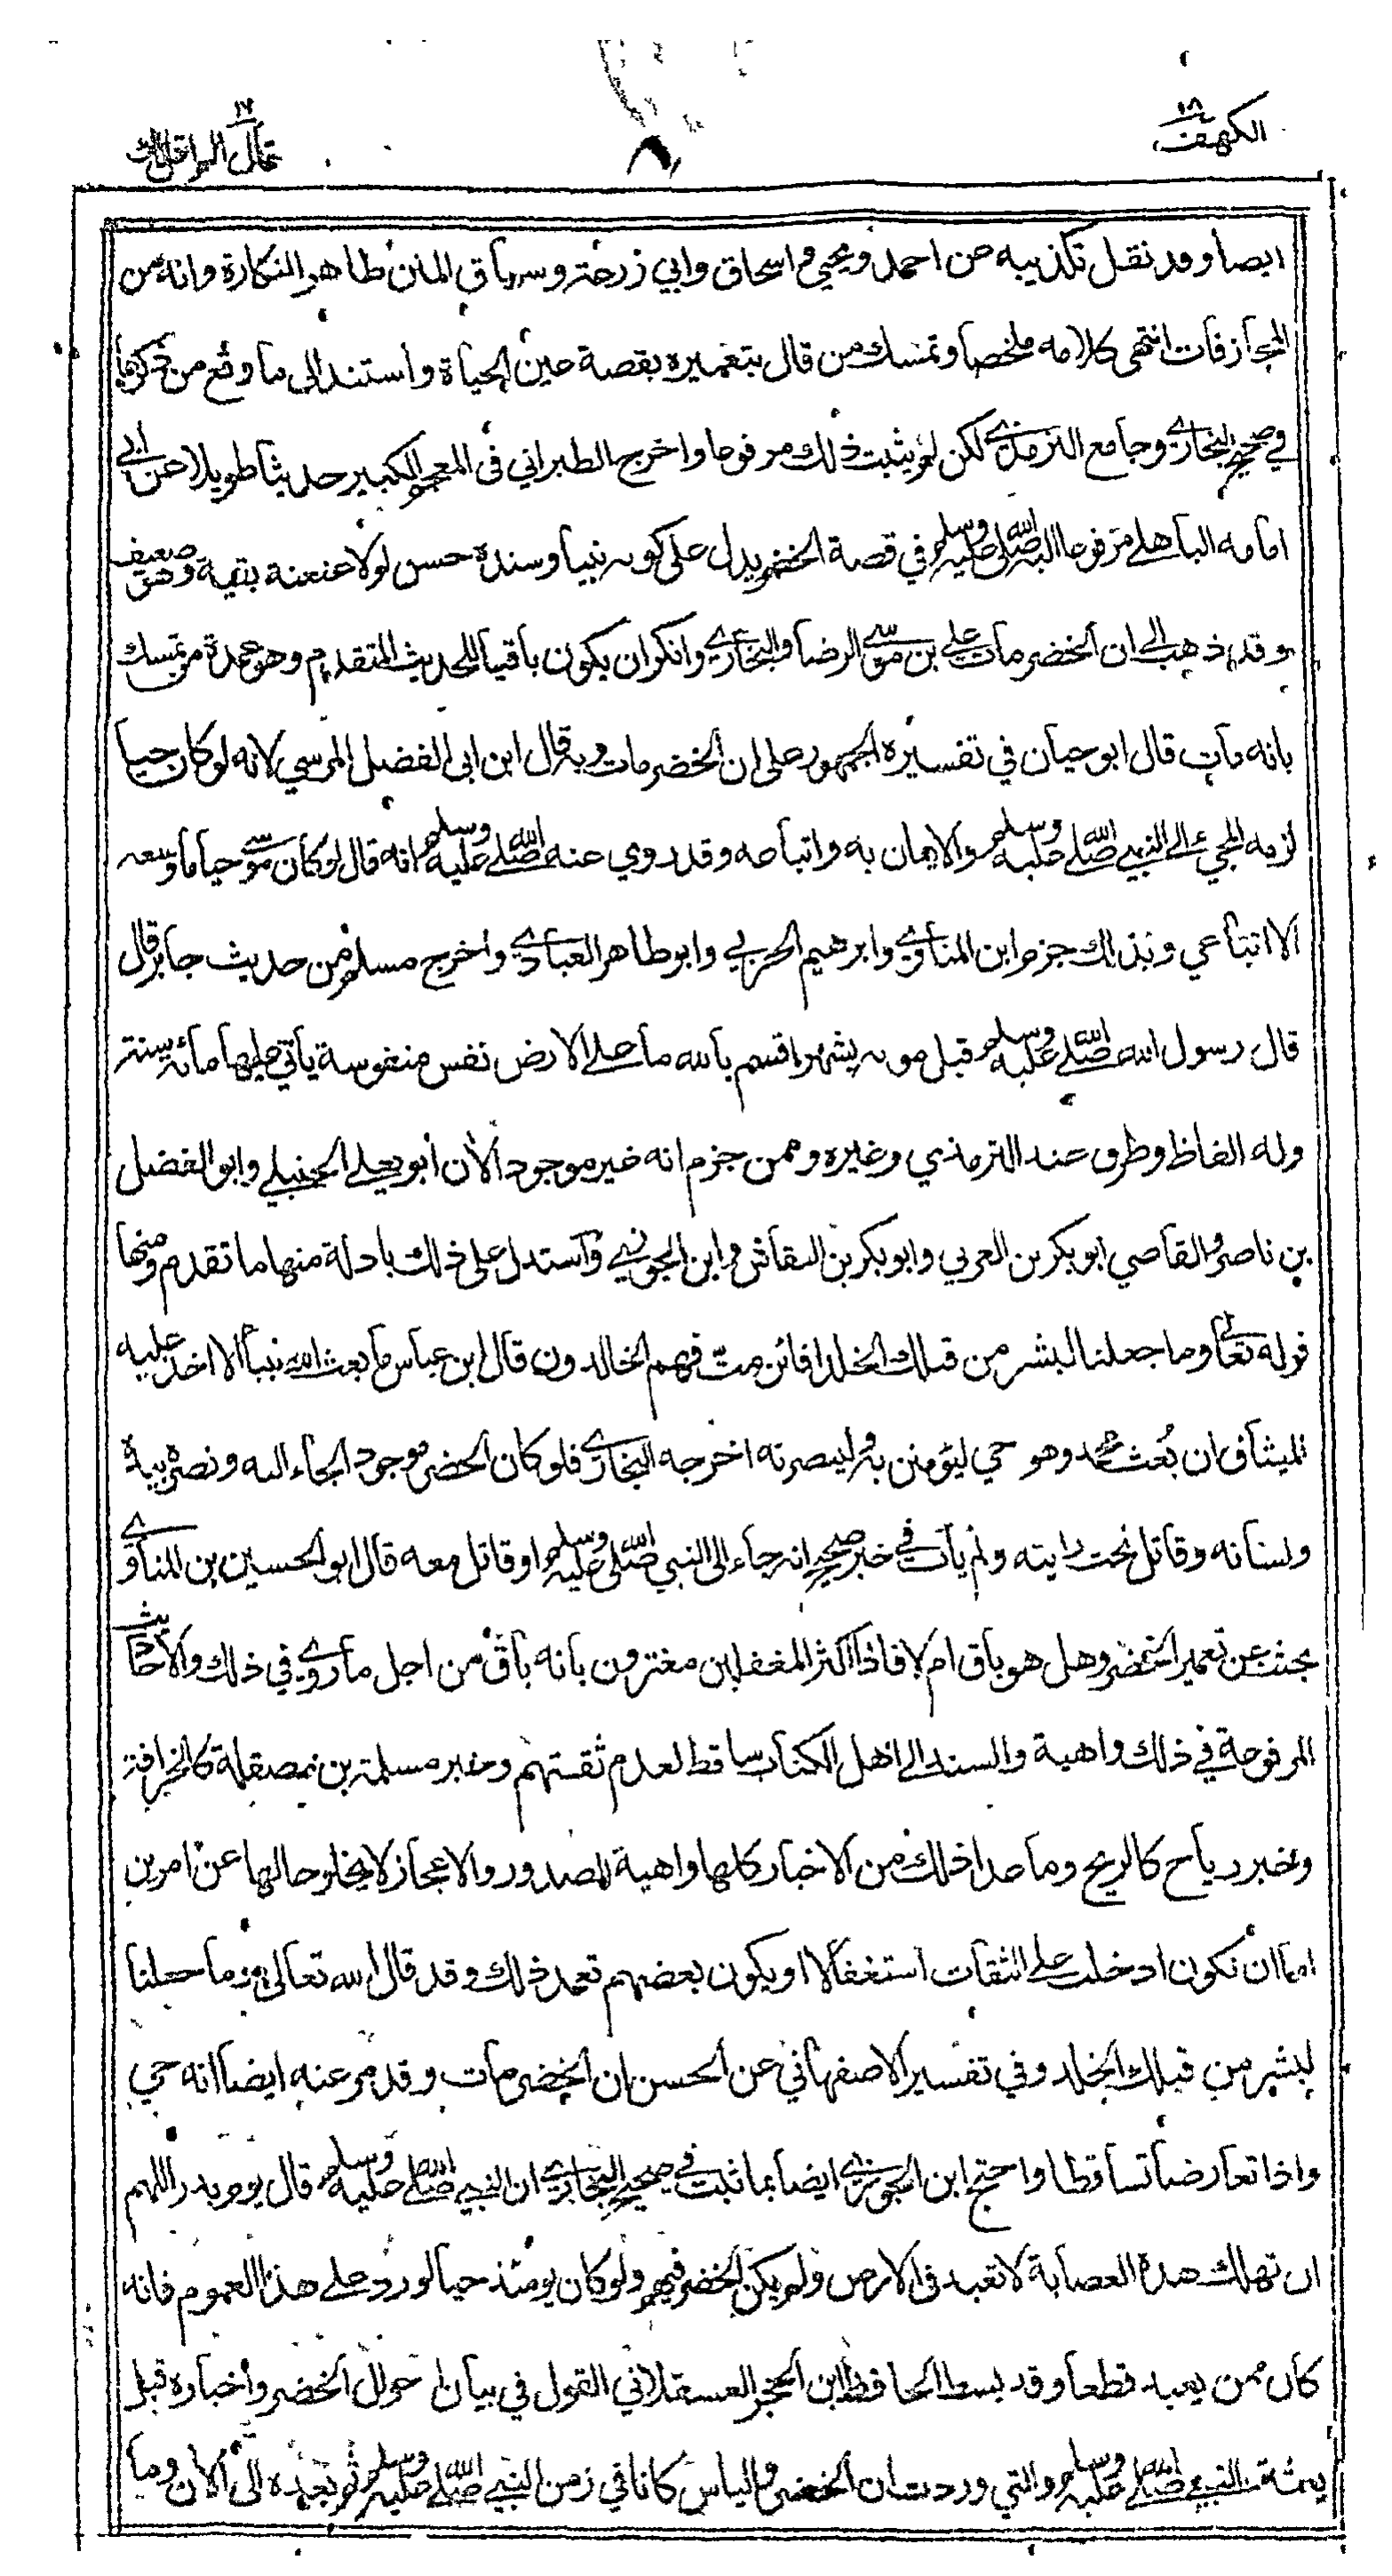 الكهف ١٨
قال الم اقل لك ١٦
ايضا وقد نقل تكذيبه عن احمد ويحيى واسحاق وابي زرعة وسياق المتن ظاهر النكارة وانه من
المجازفات انتهى كلامه ملخصا وتمسك من قال بتعميره بقصة عين الحياة واستند الى ما وقع من ذكرها
في صحيح البخاري وجامع الترمذي لكن لم يثبت ذلك مرفوعا واخرج الطبراني في المعجم الكبير حديثا طويلا عن ابي
امامه الباهلي مرفوعا الى النبي صلى الله عليه وسلم في قصة الخضر يدل على كونه نبيا وسنده حسن لولا عنعنة بقية وهو ضعيف
وقد ذهب الى ان الخضر مات علي بن موسى الرضا والبخاري وانكر ان يكون باقيا للحديث المتقدم وهو عمدة من تمسك
بانه مات قال ابو حيان في تفسيره الجمهور على ان الخضر مات وبه قال ابن ابي الفضل المرسي لانه لو كان حيا
لزمه المجيء الى النبي صلى الله عليه وسلم والايمان به واتباعه وقد روي عنه صلى الله عليه وسلم انه قال لو كان موسى حيا ما وسعه
الا اتباعي وبذلك جزم ابن المناوي وابرهيم الحربي وابو طاهر العبادي واخرج مسلم من حديث جابر قال
قال رسول الله صلى الله عليه وسلم قبل موته بشهر اقسم بالله ما على الارض نفس منفوسة يأتي عليها مائة سنة
وله الفاظ وطرق عند الترمذي وغيره وممن جزم انه غير موجود الآن ابو يعلى الحنبلي وابو الفضل
بن ناصر والقاضي ابو بكر بن العربي وابو بكر بن النقاش وابن الجوزي واستدل على ذلك بادلة منها ما تقدم ومنها
قوله تعالى وما جعلنا لبشر من قبلك الخلد افائن مت فهم الخالدون قال ابن عباس ما بعث الله نبيا الا اخذ عليه
الميثاق ان بعث محمد وهو حي ليؤمنن به ولينصرنه اخرجه البخاري فلو كان الخضر موجودا لجاء اليه ونصره بيده
ولسانه وقاتل تحت رايته ولم يأت في خبر صحيح انه جاء الى النبي صلى الله عليه وسلم او قاتل معه قال ابو الحسين بن المناوي
بحثت عن تعمير الخضر وهل هو باق ام لا فاذا اكثر المغفلين مغترون بانه باق من اجل ما روي في ذلك والاحاديث
المرفوعة في ذلك واهية والسند الى اهل الكتاب ساقط لعدم ثقتهم وخبر مسلمة بن مصقلة كالخرافة
وخبر رياح كالريح وما عدا ذلك من الاخبار كلها واهية الصدور والاعجاز لا يخلو حالها عن امرين
اما ان تكون ادخلت على الثقات استغفالا او يكون بعضهم تعمد ذلك وقد قال الله تعالى وما جعلنا
لبشر من قبلك الخلد وفي تفسير الاصفهاني عن الحسن ان الخضر مات وقد مر عنه ايضا انه حي
واذا تعارضا تساقطا واحتج ابن الجوزي ايضا بما ثبت في صحيح البخاري ان النبي صلى الله عليه وسلم قال يوم بدر اللهم
ان تهلك هذه العصابة لا تعبد في الارض ولم يكن الخضر فيهم ولو كان يومئذ حيا لورد على هذا العموم فانه
كان ممن يعبد قطعا وقد بسط الحافظ ابن الحجر العسقلاني القول في بيان احوال الخضر واخباره قبل
بعثة النبي صلى الله عليه وسلم والتي وردت ان الخضر والياس كانا في زمن النبي صلى الله عليه وسلم ثم بعده الى الآن وما